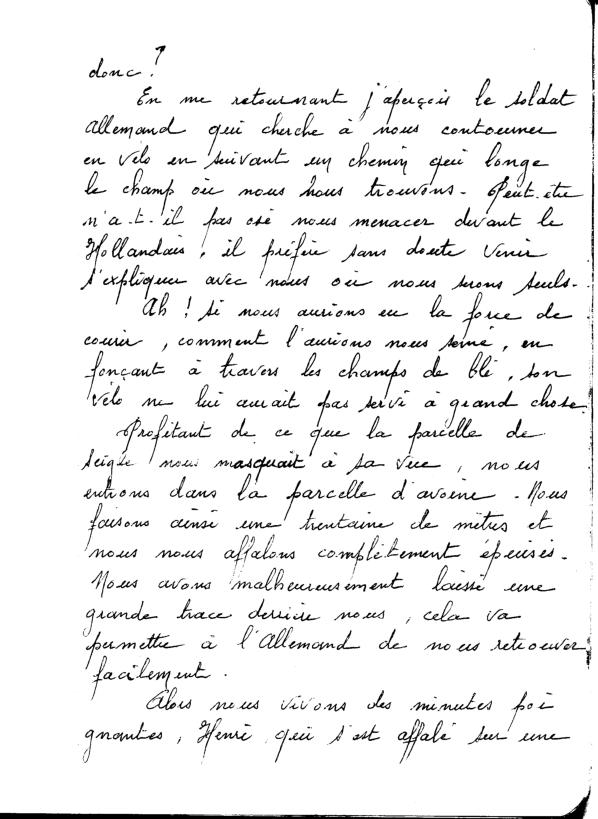 donc ?
En me retournant j'aperçois le soldat
Allemand qui cherche à nous contourner
en vélo en suivant un chemin qui longe
le champ où nous nous trouvons - Peut-etre
n'a-t-il pas osé nous menacer devant le
Hollandais, il préfère sans doute venir
s'expliquer avec nous où nous serons seuls -
Ah ! si nous aurions eu la force de
courir, comment l'aurions nous semé, en
fonçant à travers les champs de blé, son
vélo ne lui aurait pas servi à grand chose.
Profitant de ce que la parcelle de
seigle nous masquait à sa vue, nous
entrons dans la parcelle d'avoine - Nous
faisons ainsi une trentaine de mètres et
nous nous affalons complètement épuisés -
Nous avons malheureusement laissé une
grande trace derrière nous, cela va
permettre à l'Allemand de nous retrouver
facilement.
Alors nous vivons des minutes poi
gnantes, Henri qui s'est affalé sur une